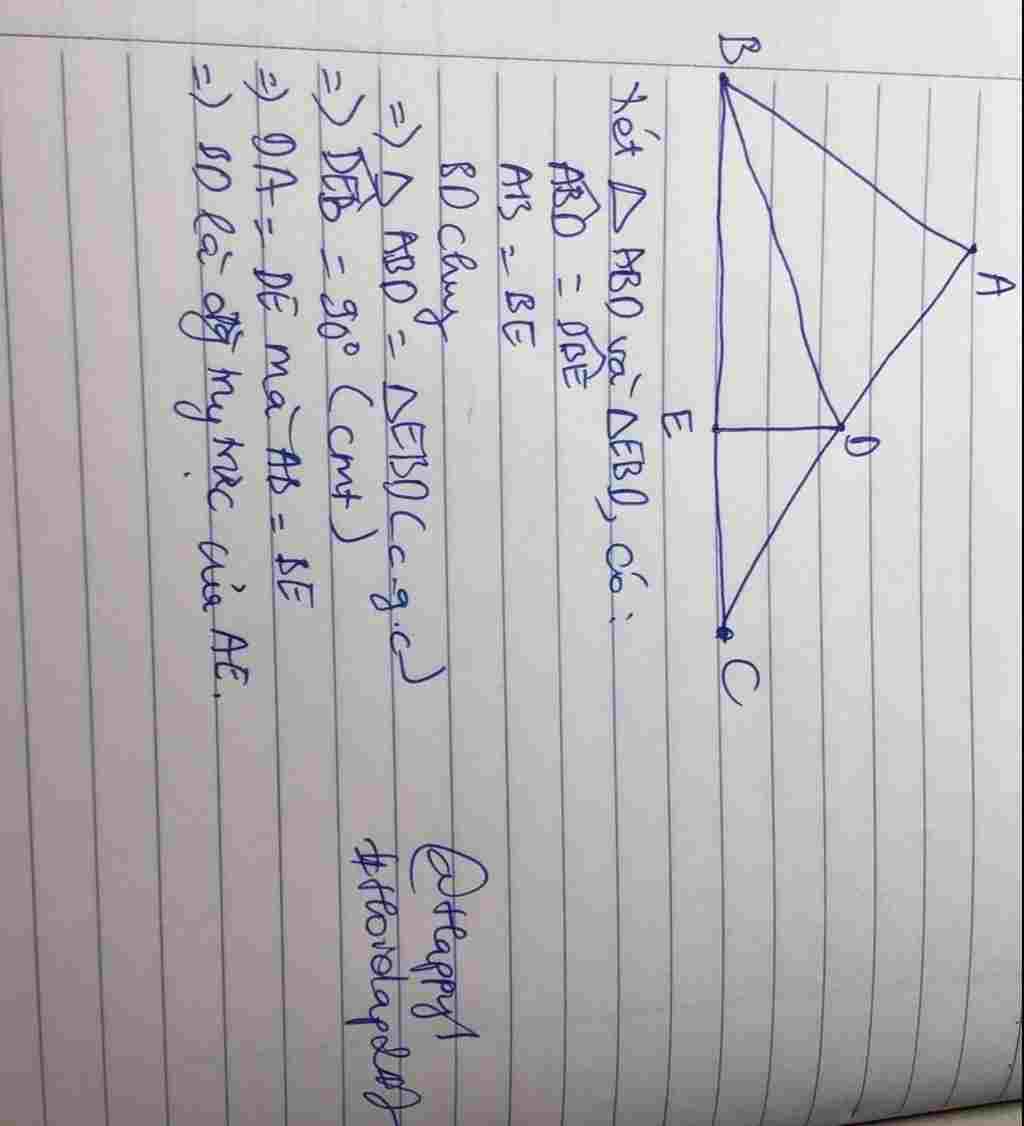 B
A
D
E
C
Xét △ ABD và △EBD, có:
ABD̂ = DBÊ
AB = BE
BD chug
=) △ ABD = △EBD (c-g.c)
=) DEB̂ = 90° (cmt)
=) DA = DE mà AB = BE
=) BD là đg trug trực của AE.
@Happy1
#Hoidap247